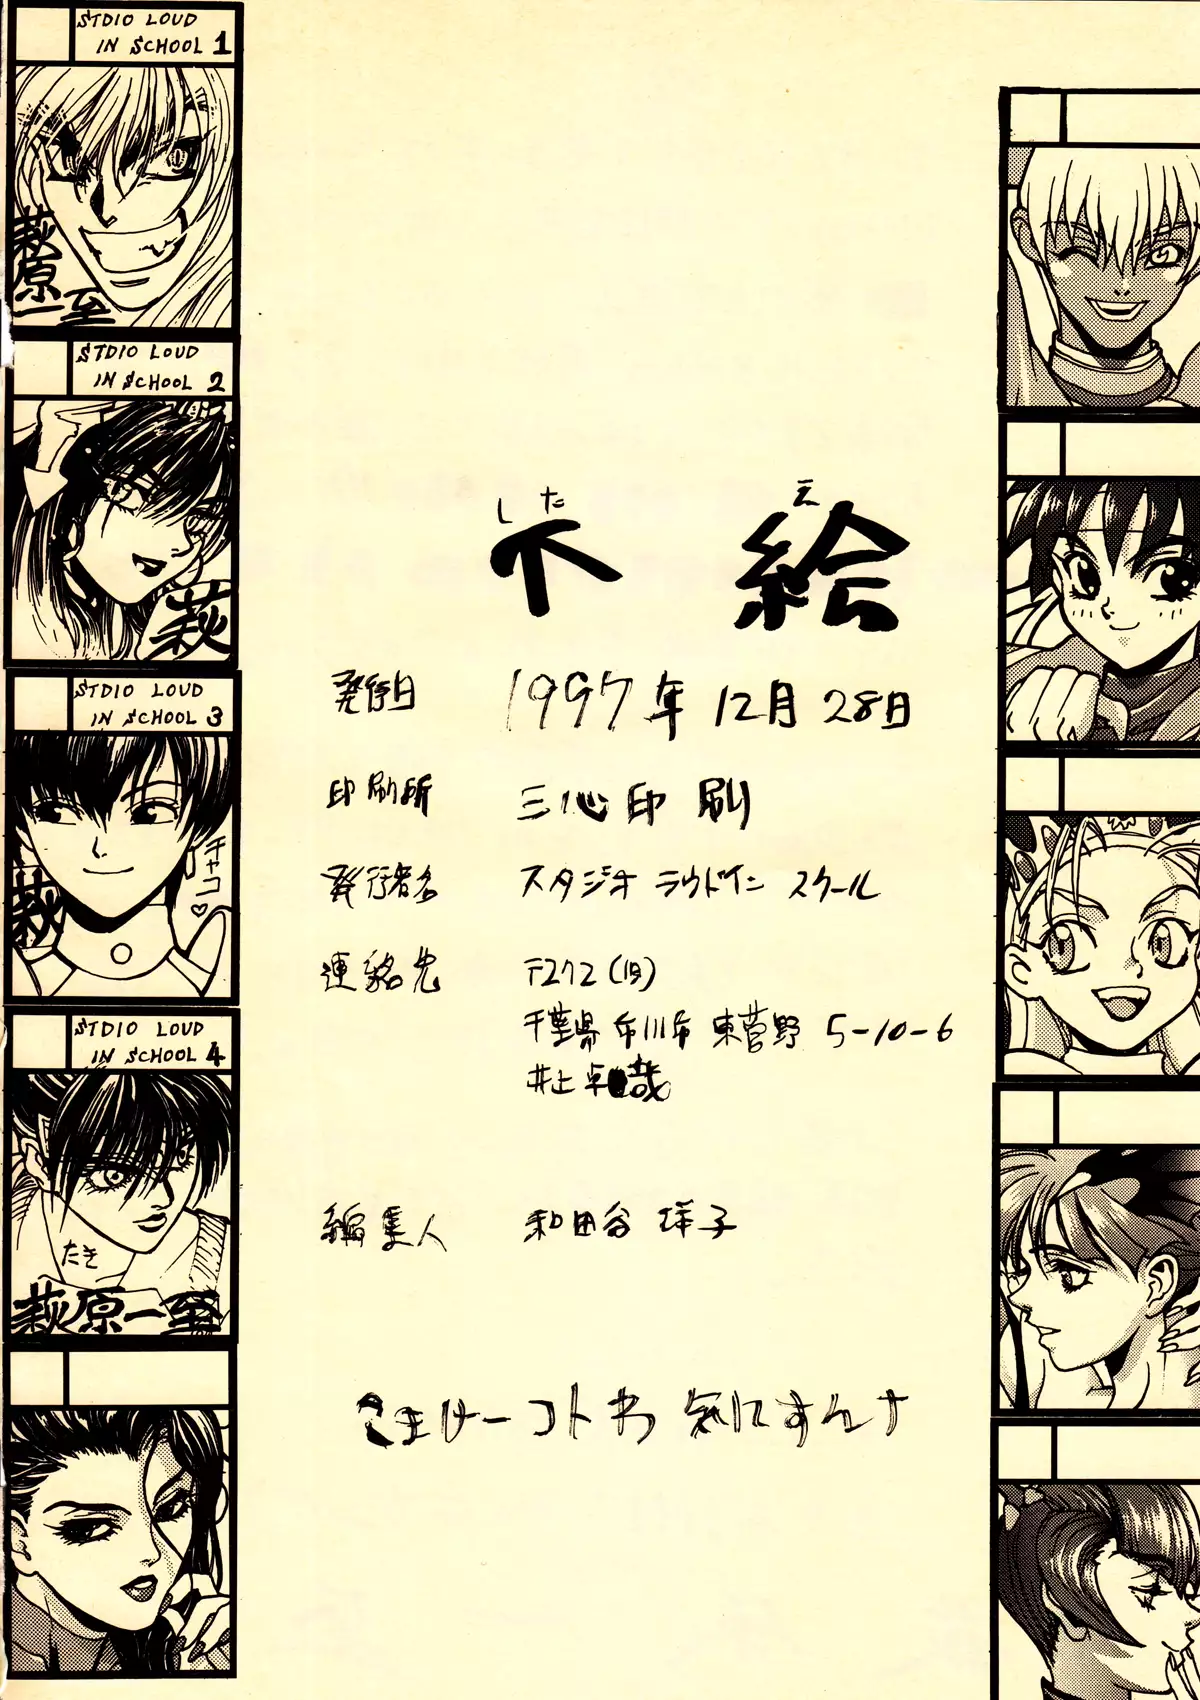 STDIO LOUD
IN SCHOOL 1
萩原
一至
STDIO LOUD
IN SCHOOL 2
萩
STDIO LOUD
IN SCHOOL 3
チャコ♡
萩
STDIO LOUD
IN SCHOOL 4
たき
萩原一至
した え
下 絵
発行日 1997年 12月 28日
印刷所 三心印刷
発行者名 スタジオ ラウドイン スクール
連絡先 〒272(旧)
千葉県 市川市 東菅野 5-10-6
井上 卓哉
編集人 和田谷 洋子
こまけーコトわ 気にすんナ